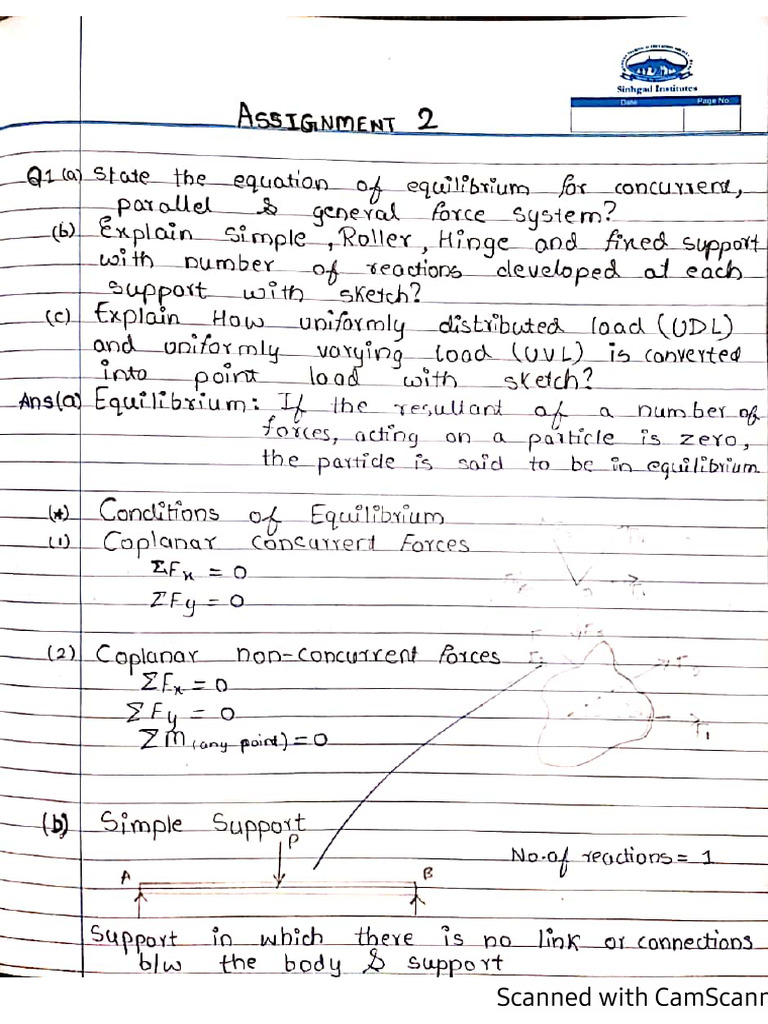 Sinhgad Institutes
Date Page No
ASSIGNMENT 2
Q1(a) State the equation of equilibrium for concurrent,
parallel & general force system?
(b) Explain simple, Roller, Hinge and fixed support
with number of reactions developed at each
support with sketch?
(c) Explain How uniformly distributed load (UDL)
and uniformly varying load (UVL) is converted
into point load with sketch?
Ans(a) Equilibrium: If the resultant of a number of
forces, acting on a particle is zero,
the particle is said to be in equilibrium
(*) Conditions of Equilibrium
(1) Coplanar concurrent Forces
ΣFx = 0
ΣFy = 0
(2) Coplanar non-concurrent forces
ΣFx = 0
ΣFy = 0
ΣM (any point) = 0
F1
(b) Simple Support
P
No. of reactions = 1
A B
Support in which there is no link or connections
b/w the body & support
Scanned with CamScann